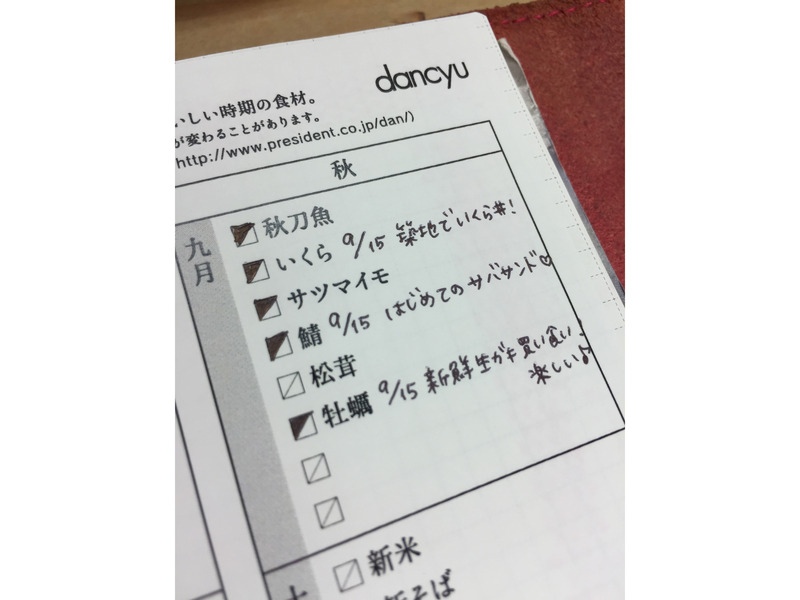 dancyu
いしい時期の食材。
が変わることがあります。
http://www.president.co.jp/dan/)
秋
九月
秋刀魚
いくら 9/15 築地でいくら丼!
サツマイモ
鯖 9/15 はじめてのサバサンド♡
松茸
牡蠣 9/15 新鮮生ガキ買い食い、
楽しい♪
新米
新そば